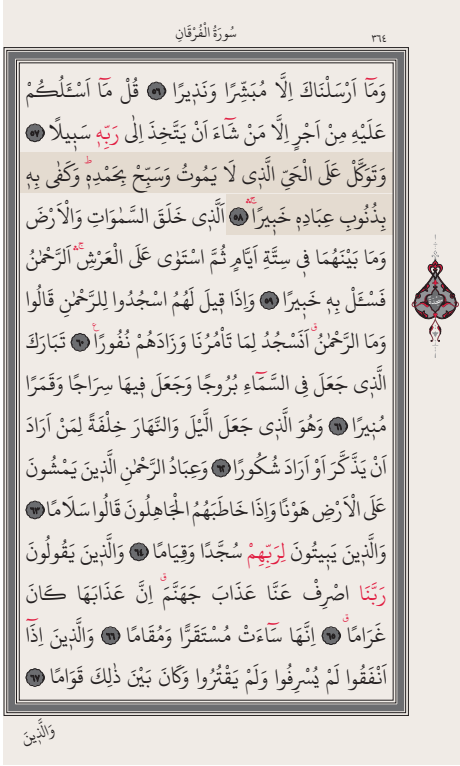 سُورَةُ الْفُرْقَانِ
٣٦٤
وَمَٓا اَرْسَلْنَاكَ اِلَّا مُبَشِّرًا وَنَذ۪يرًا ﴿٥٦﴾ قُلْ مَٓا اَسْـَٔلُكُمْ
عَلَيْهِ مِنْ اَجْرٍ اِلَّا مَنْ شَٓاءَ اَنْ يَتَّخِذَ اِلٰى رَبِّه۪ سَب۪يلًا ﴿٥٧﴾
وَتَوَكَّلْ عَلَى الْحَيِّ الَّذ۪ي لَا يَمُوتُ وَسَبِّحْ بِحَمْدِه۪ۜ وَكَفٰى بِه۪
بِذُنُوبِ عِبَادِه۪ خَب۪يرًاۚۛ ﴿٥٨﴾ اَلَّذ۪ي خَلَقَ السَّمٰوَاتِ وَالْاَرْضَ
وَمَا بَيْنَهُمَا ف۪ي سِتَّةِ اَيَّامٍ ثُمَّ اسْتَوٰى عَلَى الْعَرْشِۚۛ اَلرَّحْمٰنُ
فَسْـَٔلْ بِه۪ خَب۪يرًا ﴿٥٩﴾ وَاِذَا ق۪يلَ لَهُمُ اسْجُدُوا لِلرَّحْمٰنِ قَالُوا
وَمَا الرَّحْمٰنُۗ اَنَسْجُدُ لِمَا تَأْمُرُنَا وَزَادَهُمْ نُفُورًا۟ ﴿٦٠﴾ تَبَارَكَ
الَّذ۪ي جَعَلَ فِي السَّمَٓاءِ بُرُوجًا وَجَعَلَ ف۪يهَا سِرَاجًا وَقَمَرًا
مُن۪يرًا ﴿٦١﴾ وَهُوَ الَّذ۪ي جَعَلَ الَّيْلَ وَالنَّهَارَ خِلْفَةً لِمَنْ اَرَادَ
اَنْ يَذَّكَّرَ اَوْ اَرَادَ شُكُورًا ﴿٦٢﴾ وَعِبَادُ الرَّحْمٰنِ الَّذ۪ينَ يَمْشُونَ
عَلَى الْاَرْضِ هَوْنًا وَاِذَا خَاطَبَهُمُ الْجَاهِلُونَ قَالُوا سَلَامًا ﴿٦٣﴾
وَالَّذ۪ينَ يَب۪يتُونَ لِرَبِّهِمْ سُجَّدًا وَقِيَامًا ﴿٦٤﴾ وَالَّذ۪ينَ يَقُولُونَ
رَبَّنَا اصْرِفْ عَنَّا عَذَابَ جَهَنَّمَۗ اِنَّ عَذَابَهَا كَانَ
غَرَامًاۗ ﴿٦٥﴾ اِنَّهَا سَٓاءَتْ مُسْتَقَرًّا وَمُقَامًا ﴿٦٦﴾ وَالَّذ۪ينَ اِذَٓا
اَنْفَقُوا لَمْ يُسْرِفُوا وَلَمْ يَقْتُرُوا وَكَانَ بَيْنَ ذٰلِكَ قَوَامًا ﴿٦٧﴾
وَالَّذ۪ينَ